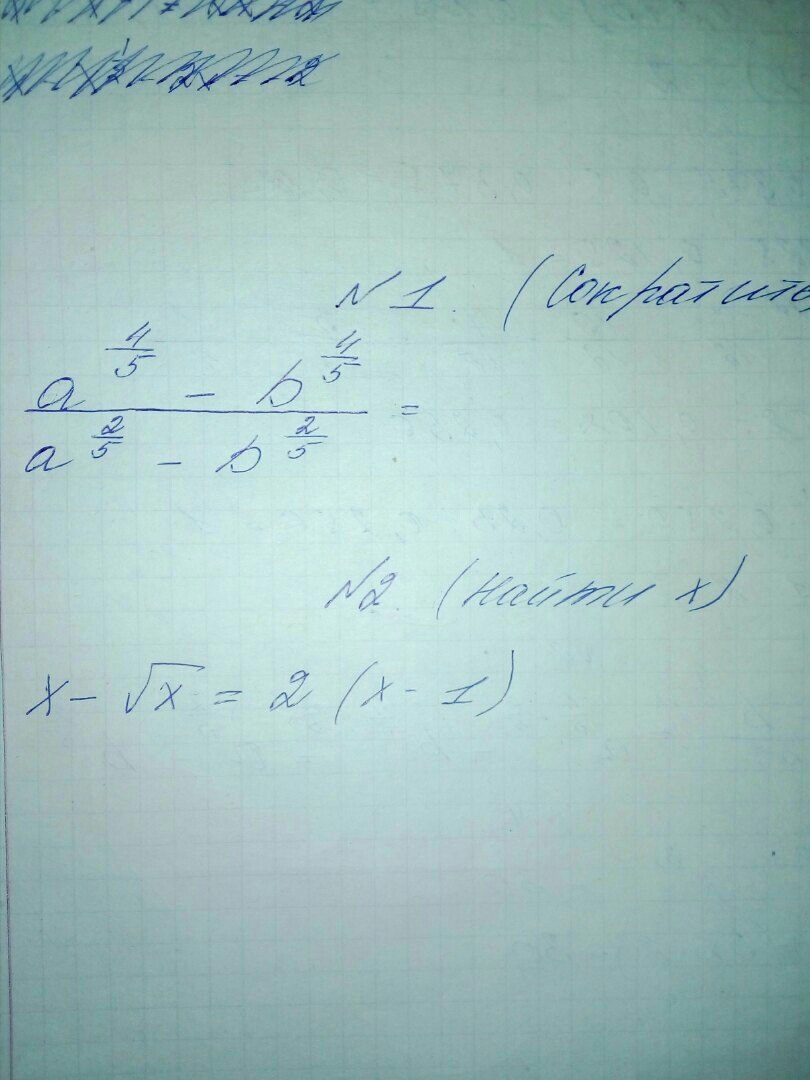 N 1. (Сократить
a^{4/5} - b^{4/5}
/ a^{2/5} - b^{2/5} =
N2. (найти x)
x - √x = 2 (x - 1)